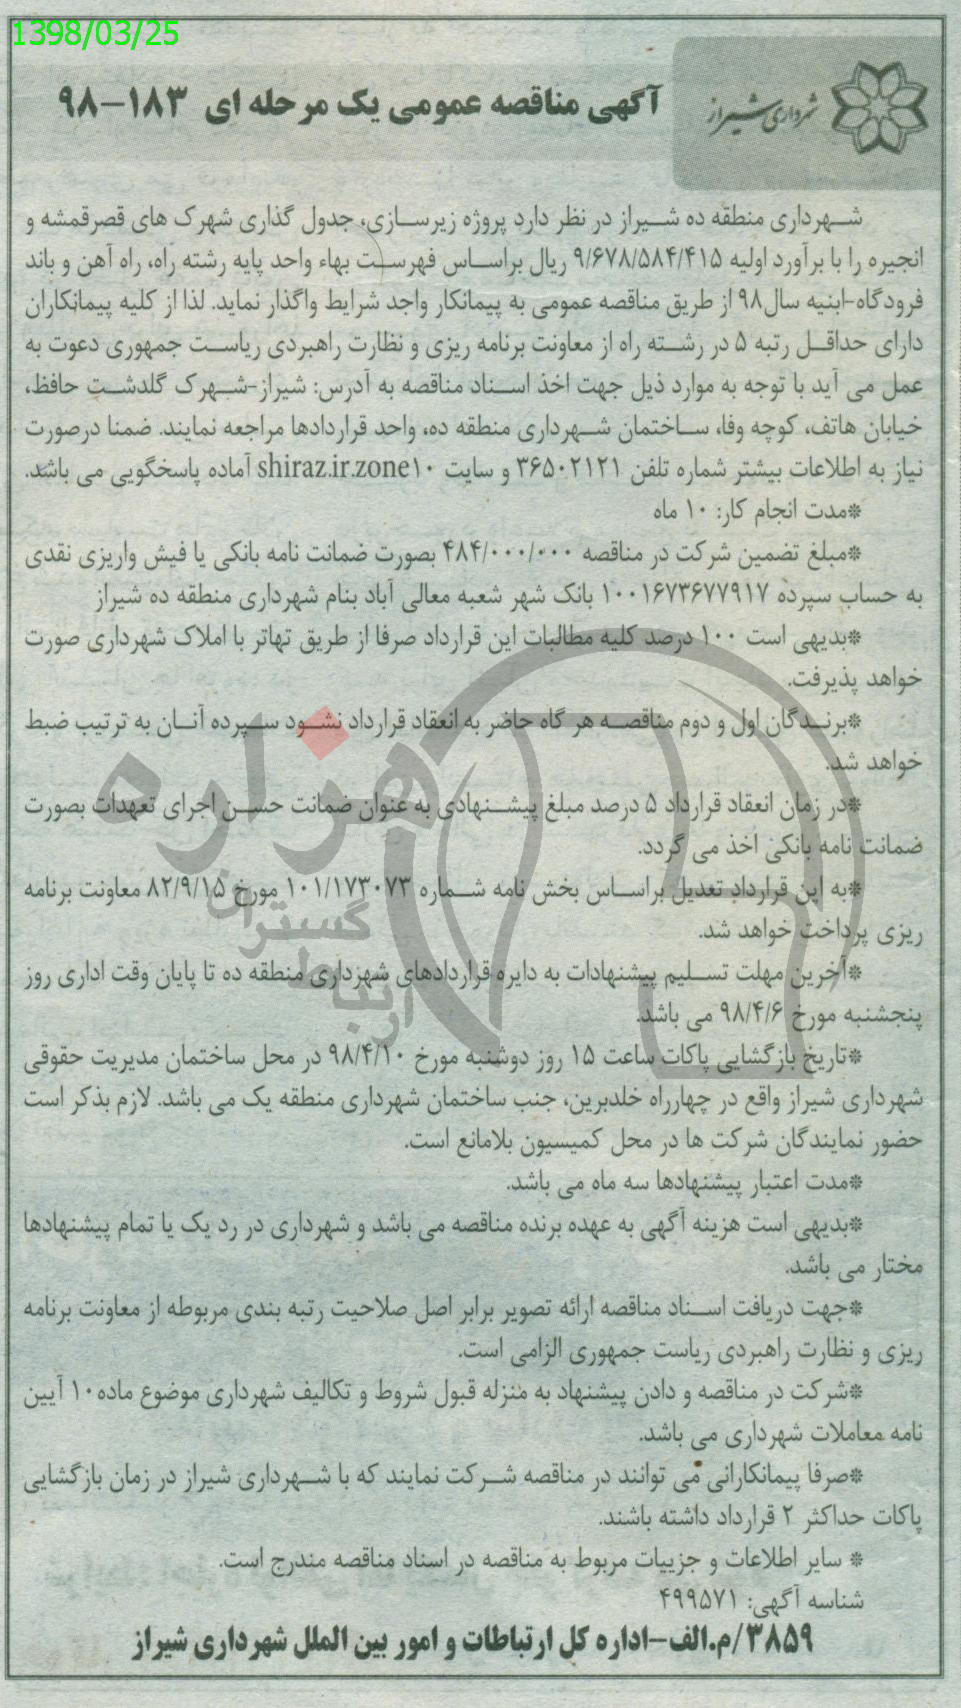 1398/03/25
شهرداری شیراز
آگهی مناقصه عمومی یک مرحله ای ۱۸۳-۹۸
شهرداری منطقه ده شیراز در نظر دارد پروژه زیرسازی، جدول گذاری شهرک های قصرقمشه و
انجیره را با برآورد اولیه ۹/۶۷۸/۵۸۴/۴۱۵ ریال براساس فهرست بهاء واحد پایه رشته راه، راه آهن و باند
فرودگاه-ابنیه سال۹۸ از طریق مناقصه عمومی به پیمانکار واجد شرایط واگذار نماید. لذا از کلیه پیمانکاران
دارای حداقل رتبه ۵ در رشته راه از معاونت برنامه ریزی و نظارت راهبردی ریاست جمهوری دعوت به
عمل می آید با توجه به موارد ذیل جهت اخذ اسناد مناقصه به آدرس: شیراز-شهرک گلدشت حافظ،
خیابان هاتف، کوچه وفا، ساختمان شهرداری منطقه ده، واحد قراردادها مراجعه نمایند. ضمنا درصورت
نیاز به اطلاعات بیشتر شماره تلفن ۳۶۵۰۲۱۲۱ و سایت shiraz.ir.zone۱۰ آماده پاسخگویی می باشد.
*مدت انجام کار: ۱۰ ماه
*مبلغ تضمین شرکت در مناقصه ۴۸۴/۰۰۰/۰۰۰ بصورت ضمانت نامه بانکی یا فیش واریزی نقدی
به حساب سپرده ۱۰۰۱۶۷۳۶۷۷۹۱۷ بانک شهر شعبه معالی آباد بنام شهرداری منطقه ده شیراز
*بدیهی است ۱۰۰ درصد کلیه مطالبات این قرارداد صرفا از طریق تهاتر با املاک شهرداری صورت
خواهد پذیرفت.
*برندگان اول و دوم مناقصه هر گاه حاضر به انعقاد قرارداد نشود سپرده آنان به ترتیب ضبط
خواهد شد.
*در زمان انعقاد قرارداد ۵ درصد مبلغ پیشنهادی به عنوان ضمانت حسن اجرای تعهدات بصورت
ضمانت نامه بانکی اخذ می گردد.
*به این قرارداد تعدیل براساس بخش نامه شماره ۱۰۱/۱۷۳۰۷۳ مورخ ۸۲/۹/۱۵ معاونت برنامه
ریزی پرداخت خواهد شد.
*آخرین مهلت تسلیم پیشنهادات به دایره قراردادهای شهرداری منطقه ده تا پایان وقت اداری روز
پنجشنبه مورخ ۹۸/۴/۶ می باشد.
*تاریخ بازگشایی پاکات ساعت ۱۵ روز دوشنبه مورخ ۹۸/۴/۱۰ در محل ساختمان مدیریت حقوقی
شهرداری شیراز واقع در چهارراه خلدبرین، جنب ساختمان شهرداری منطقه یک می باشد. لازم بذکر است
حضور نمایندگان شرکت ها در محل کمیسیون بلامانع است.
*مدت اعتبار پیشنهادها سه ماه می باشد.
*بدیهی است هزینه آگهی به عهده برنده مناقصه می باشد و شهرداری در رد یک یا تمام پیشنهادها
مختار می باشد.
*جهت دریافت اسناد مناقصه ارائه تصویر برابر اصل صلاحیت رتبه بندی مربوطه از معاونت برنامه
ریزی و نظارت راهبردی ریاست جمهوری الزامی است.
*شرکت در مناقصه و دادن پیشنهاد به منزله قبول شروط و تکالیف شهرداری موضوع ماده۱۰ آیین
نامه معاملات شهرداری می باشد.
*صرفا پیمانکارانی می توانند در مناقصه شرکت نمایند که با شهرداری شیراز در زمان بازگشایی
پاکات حداکثر ۲ قرارداد داشته باشند.
* سایر اطلاعات و جزییات مربوط به مناقصه در اسناد مناقصه مندرج است.
شناسه آگهی: ۴۹۹۵۷۱
۳۸۵۹/م.الف-اداره کل ارتباطات و امور بین الملل شهرداری شیراز
هزاره
گستران